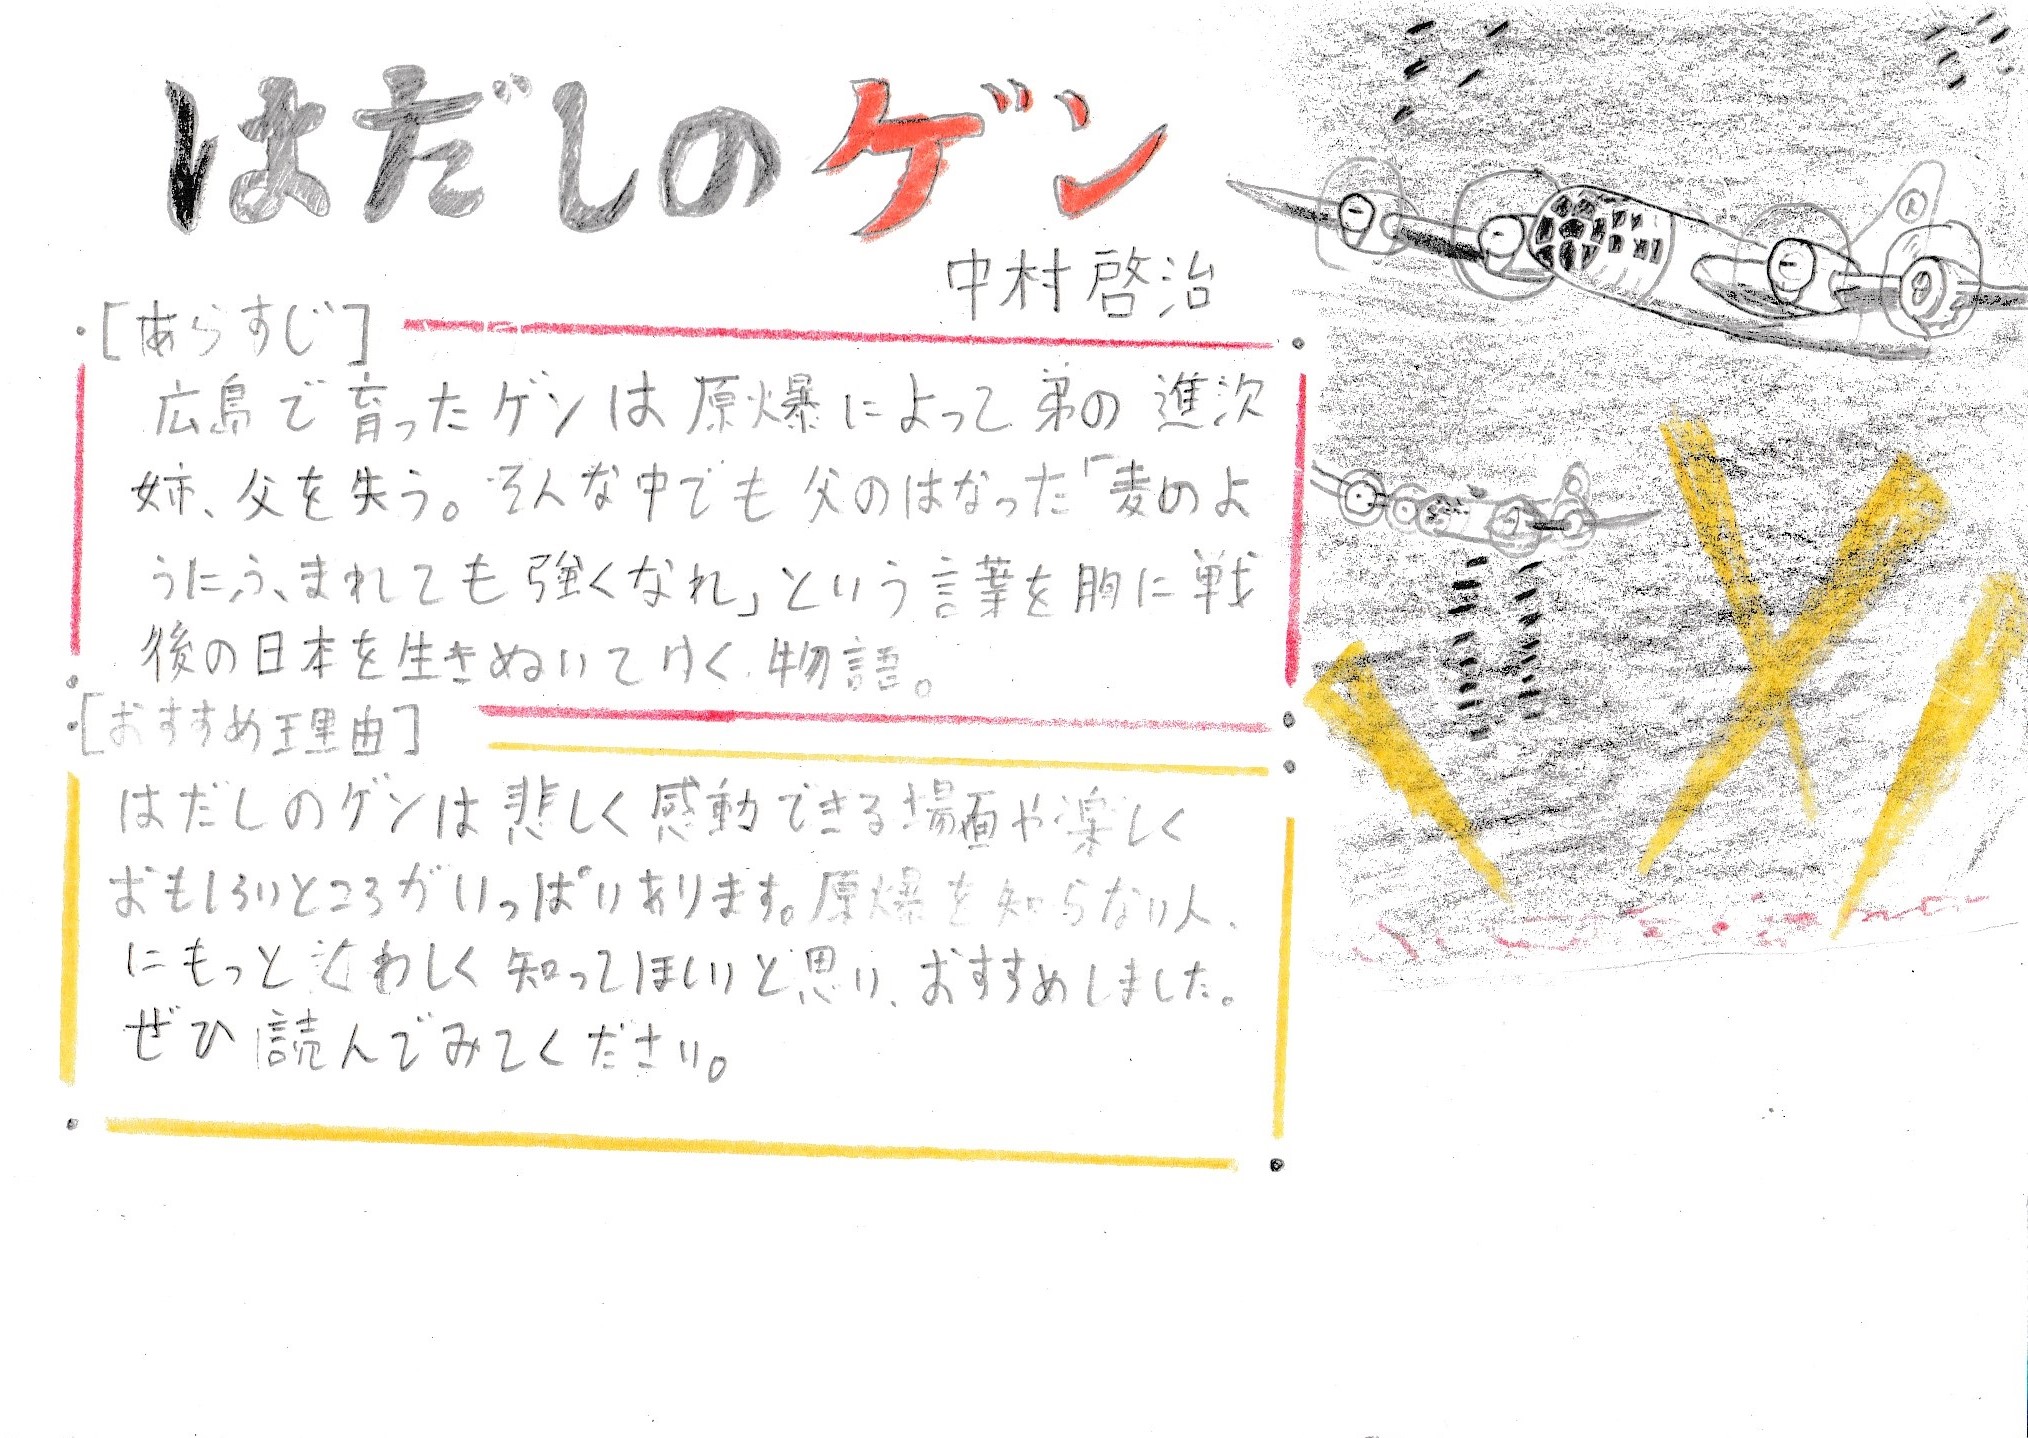 はだしのゲン
中村啓治
[あらすじ]
広島で育ったゲンは原爆によって弟の進次
姉、父を失う。そんな中でも父のはなった「麦のよ
うにふまれても強くなれ」という言葉を胸に戦
後の日本を生きぬいてゆく物語。
[おすすめ理由]
はだしのゲンは悲しく感動できる場面や楽しく
おもしろいところがいっぱいあります。原爆を知らない人、
にもっとくわしく知ってほしいと思い、おすすめしました。
ぜひ読んでみてください。